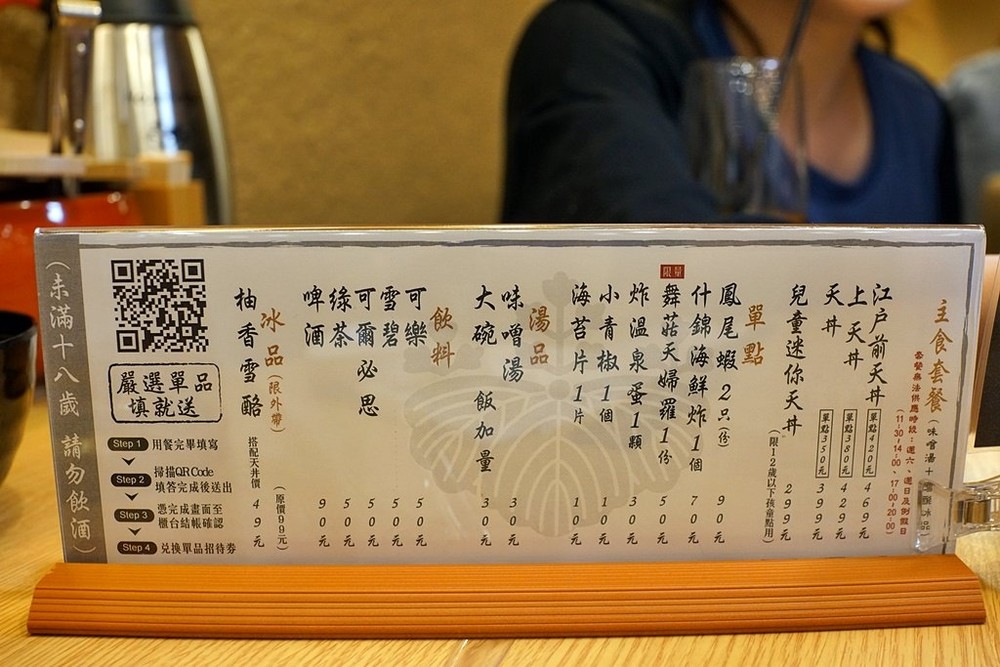 主食套餐
(味噌湯+
套餐無法供應時段：週六、週日及例假日
(11:30-14:00、17:00-20:00)
江戶前天丼 單點420元 469元
上天丼 單點380元 429元
天丼 單點350元 399元
兒童迷你天丼 299元
(限12歲以下孩童點用)
單點
鳳尾蝦2只(份) 90元
什錦海鮮炸1個 70元
限量
舞菇天婦羅1份 50元
炸溫泉蛋1顆 30元
小青椒1個 10元
海苔片1片 10元
湯品
味噌湯 30元
大碗 飯加量 30元
飲料
可樂 50元
雪碧 50元
可爾必思 50元
綠茶 50元
啤酒 90元
冰品(限外帶)
(原價99元)
柚香雪酪 搭配天丼價 49元
嚴選單品
填就送
Step 1 用餐完畢填寫
Step 2 掃描QR Code
填答完成後送出
Step 3 憑完成畫面至
櫃台結帳確認
Step 4 兌換單品招待券
(未滿十八歲 請勿飲酒)